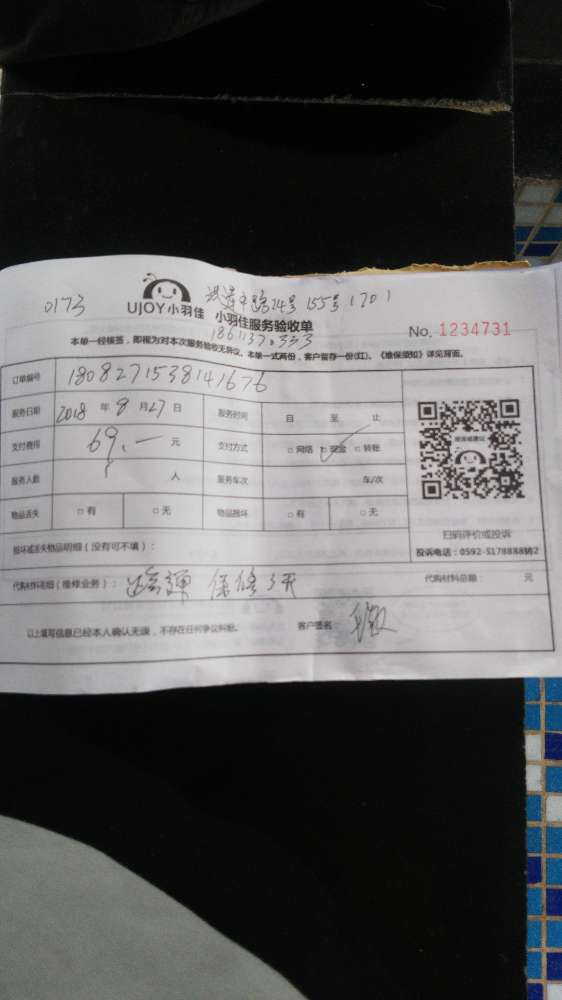 0173
UJOY小羽佳
小羽佳服务验收单
No. 1234731
本单一经核签，即视为对本次服务验收无异议。本单一式两份，客户留存一份(红)。《维保须知》详见背面。
订单编号 1808271538141676
服务日期 2018 年 8 月 27 日 服务时间 自 至 止
支付费用 69.— 元 支付方式 □网络 □现金 □转账
服务人数 1 人 服务车次 车/次
物品丢失 □有 □无 物品损坏 □有 □无
扫码评价或投诉
投诉电话：0592-5178888转2
损坏或丢失物品明细（没有可不填）：
代购材料明细（维修业务）： 保修3天 代购材料总额： 元
以上填写信息已经本人确认无误，不存在任何争议纠纷。 客户签名